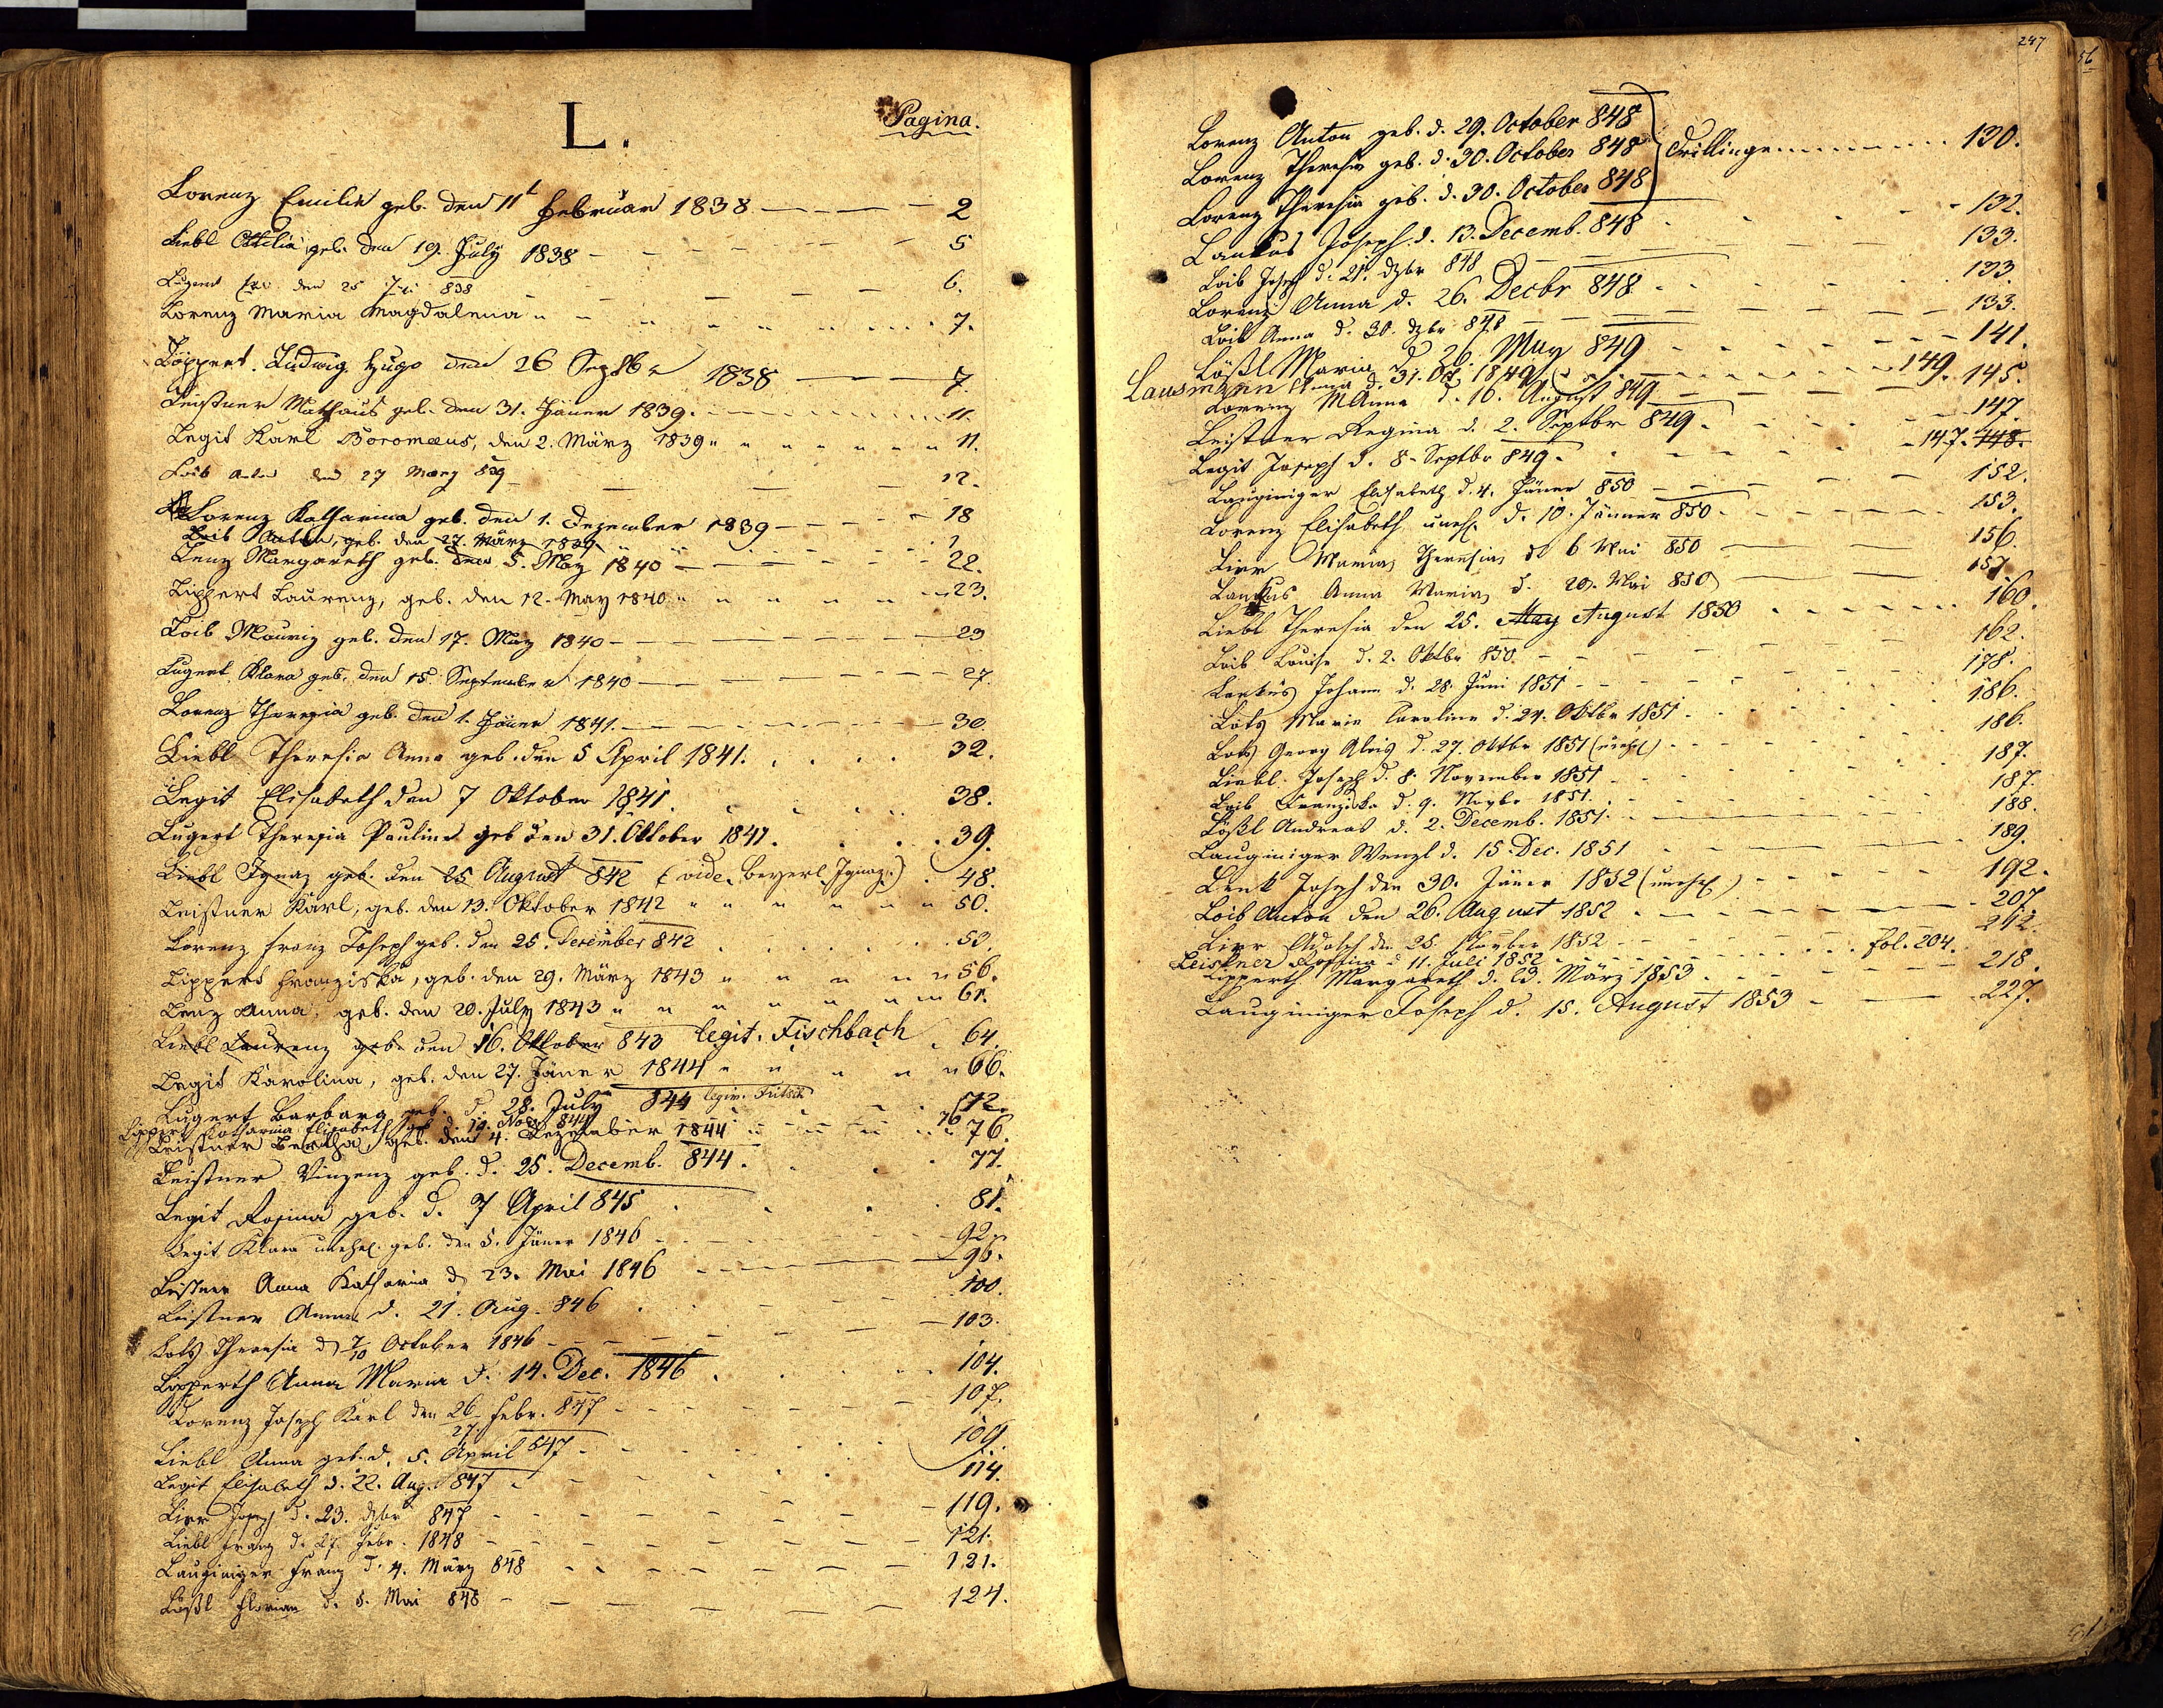 L.
Pagina.
Lorenz Emilie geb. den 11t Februar 1838 2
Liebl Ottilia geb. den 19. July 1838 5
Lugert den 25 838 6.
Lorenz Maria Magdalena 7.
Löppert Ludwig Hugo den 26 Septbr 1838 7.
Leistner Mathäus geb. den 31. Jäner 1839. 11.
Legit Karl Boromæus, den 2. März 1839 11.
Loib Anton den 27 März 839 12.
Lorenz Katharina geb. den 1. Dezember 1839 18
Loib Anton, geb. den 27. März 1839
Lenz Margareth geb. den 5. May 1840 22.
Lippert Laurenz, geb. den 12. May 1840 23.
Loib Mauriz geb. den 17. May 1840 23
Lugert Klara geb. den 15. September 1840 27.
Lorenz Theresia geb. den 1. Jäner 1841. 30.
Liebl Theresia Anna geb. den 5 April 1841. 32.
Legit Elisabeth den 7 Oktober 1841. 38.
Lugert Theresia Paulina geb den 31. Oktober 1841. 39.
Liebl Ignaz geb. den 25 August 842 (vide. Beyerl Ignaz.) 48.
Leistner Karl, geb. den 13. Oktober 1842 50.
Lorenz Franz Joseph geb. den 25. Dezember 842 53.
Lippert Franziska, geb. den 29. März 1843 56.
Lenz Anna, geb. den 20. July 1843 61.
Liebl Laurenz geb. den 16. Oktober 843 legit. Fischbach 64.
Legit Karolina, geb. den 27. Jäner 1844 66.
Lugert Barbara geb. d. 28. July 844 legiv. Fritsch 72.
Lippert Katharina Elisabeth geb. d. 19. Novb 844 76
Leistner Bertha geb. den 4. Dezember 1844 76.
Leistner Vinzenz geb. d. 25. Decemb. 844. 77.
Legit Rosina geb. d. 7 April 845 81.
Legit Klara unehel. geb. den 5. Jäner 1846 92.
Leistner Anna Katharina d. 23. Mai 1846 96.
Leistner Anna d. 21. Aug. 846 100.
Lotz Theresia d 7/10 October 1846 103.
Lipperth Anna Maria d. 14. Dec. 1846 104.
Lorenz Joseph Karl den 26 Febr. 847 107.
27.
Liebl Anna geb. d. 5. April 847 109.
Legit Elisabeth d. 22. Aug. 847 114.
Lirr Joseph d. 23. dzbr 847 119.
Liebl Franz d. 27. Febr. 1848 121.
Lauginiger Franz d. 4. März 848 121.
Lößl Florian d. 8. Mai 848 124.
247
56
Lorenz Anton geb. d. 29. October 848
Lorenz Theresia geb. d. 30. October 848 Drillinge 130.
Lorenz Theresia geb. d. 30. October 848
Lankus Joseph d. 13. Decemb. 848 132.
Loib Joseph d. 21. dzbr 848 133.
Lorenz Anna d. 26. Decbr 848. 133.
Loib Anna d. 30. dzbr 848 133.
Lößl Maria d 26. May 849 141.
Lausmann Anna d. 31. Oct 1849 149.
Lorenz MAnna d. 16. August 849 145.
Leistner Regina d. 2. Septbr 849. 147.
Legit Joseph d. 8. Septbr 849. 147. 148.
Lauginiger Elisabeth d. 4. Jäner 850 152.
Lorenz Elisabeth unehl. d. 10. Jänner 850. 153.
Lirr Maria Theresia d 6 Mai 850 156.
Lankus Anna Maria d. 20. Mai 850 157
Liebl Theresia den 25. May August 1850 160.
Loib Louise d. 2. Oktbr 850. 162.
Lankus Johann d. 28. Juni 1851 178.
Lotz Maria Caroline d. 24. Oktbr 1851 186.
Lotz Georg Alois d. 27. Oktbr 1851 (unehl) 186.
Liebl Joseph d. 8. November 1851 187.
Loib Franziska d. 9. Novbr 1851. 187.
Lößl Andreas d. 2. Decemb. 1851. 188.
Lauginiger Wenzl d. 15. Dec. 1851 189.
Lenk Joseph den 30. Jäner 1852 (unehel) 192.
Loib Anton den 26. August 1852 207.
Lirr Adolph den 25. 1852 212.
Leistner Rosina d 11. Juli 1852 fol. 204.
Lipperth Margareth d. 23. März 1853 218.
Lauginiger Joseph d. 15. August 1853 227.